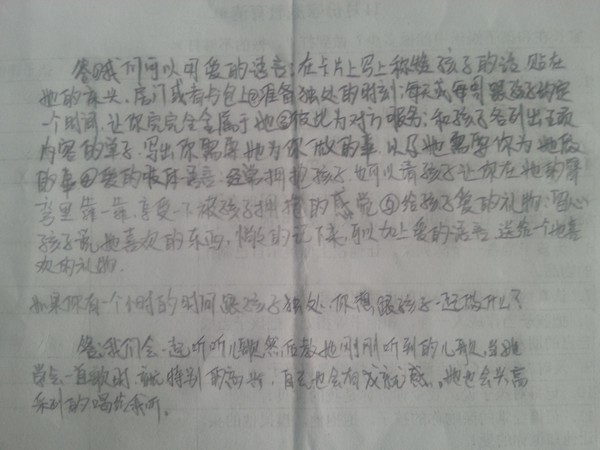 答①我们可以用爱的语言：在卡片上写上称赞孩子的话，贴在
她的床头，房门或者书包上②准备独处的时刻：每天或每周跟孩子约定
一个时间，让你完完全全属于她③彼此为对方服务：和孩子各列出五项
内容的单子，写出你需要她为你做的事，以及她需要你为她做
的事④爱的肢体语言：经常拥抱孩子，也可以请孩子让你在她的臂
弯里靠一靠，享受一下被孩子拥抱的感觉⑤给孩子爱的礼物：留心
孩子说她喜欢的东西，悄悄的记下来，可以加上爱的语言，送给一个她喜
欢的礼物。
如果你有一个小时的时间跟孩子独处，你想跟孩子一起做什么？
答：我们会一起听听儿歌，然后教她刚刚听到的儿歌，当她
学会一首歌时，就特别的高兴，自己也会有成就感，她也会兴高
采烈的唱给我听。